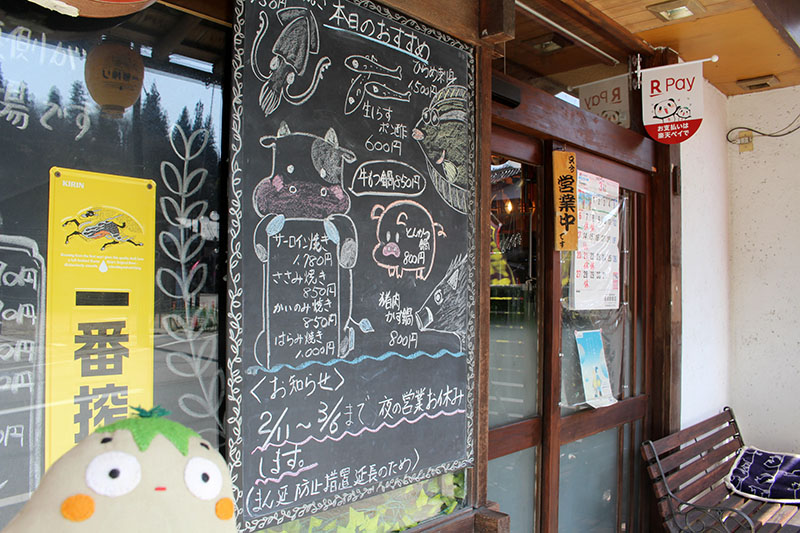 本日のおすすめ
ひらめ刺身
450円
生しらす
ポン酢
600円
牛もつ鍋850円
サーロイン焼き
1,780円
ささみ焼き
850円
かいのみ焼き
850円
はらみ焼き
1,000円
とんかつ
鍋
800円
猪肉
かす鍋
800円
<お知らせ>
2/11〜3/6まで 夜の営業お休み
します。
(まん延防止措置延長のため)
KIRIN
一番搾
営業中
です
R Pay
お支払いは
楽天ペイで
Pay